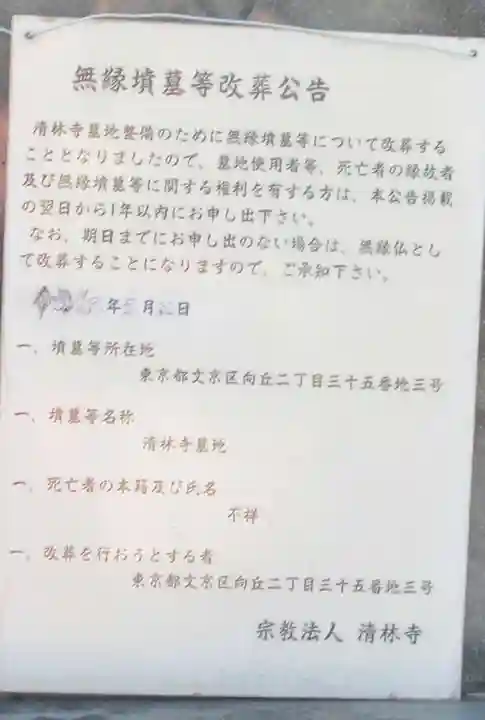 無縁墳墓等改葬公告
清林寺墓地整備のために無縁墳墓等について改葬する
こととなりましたので、墓地使用者等、死亡者の縁故者
及び無縁墳墓等に関する権利を有する方は、本公告掲載
の翌日から1年以内にお申し出下さい。
なお、期日までにお申し出のない場合は、無縁仏とし
て改葬することになりますので、ご承知下さい。
年 月 日
一、墳墓等所在地
東京都文京区向丘二丁目三十五番地三号
一、墳墓等名称
清林寺墓地
一、死亡者の本籍及び氏名
不祥
一、改葬を行おうとする者
東京都文京区向丘二丁目三十五番地三号
宗教法人 清林寺